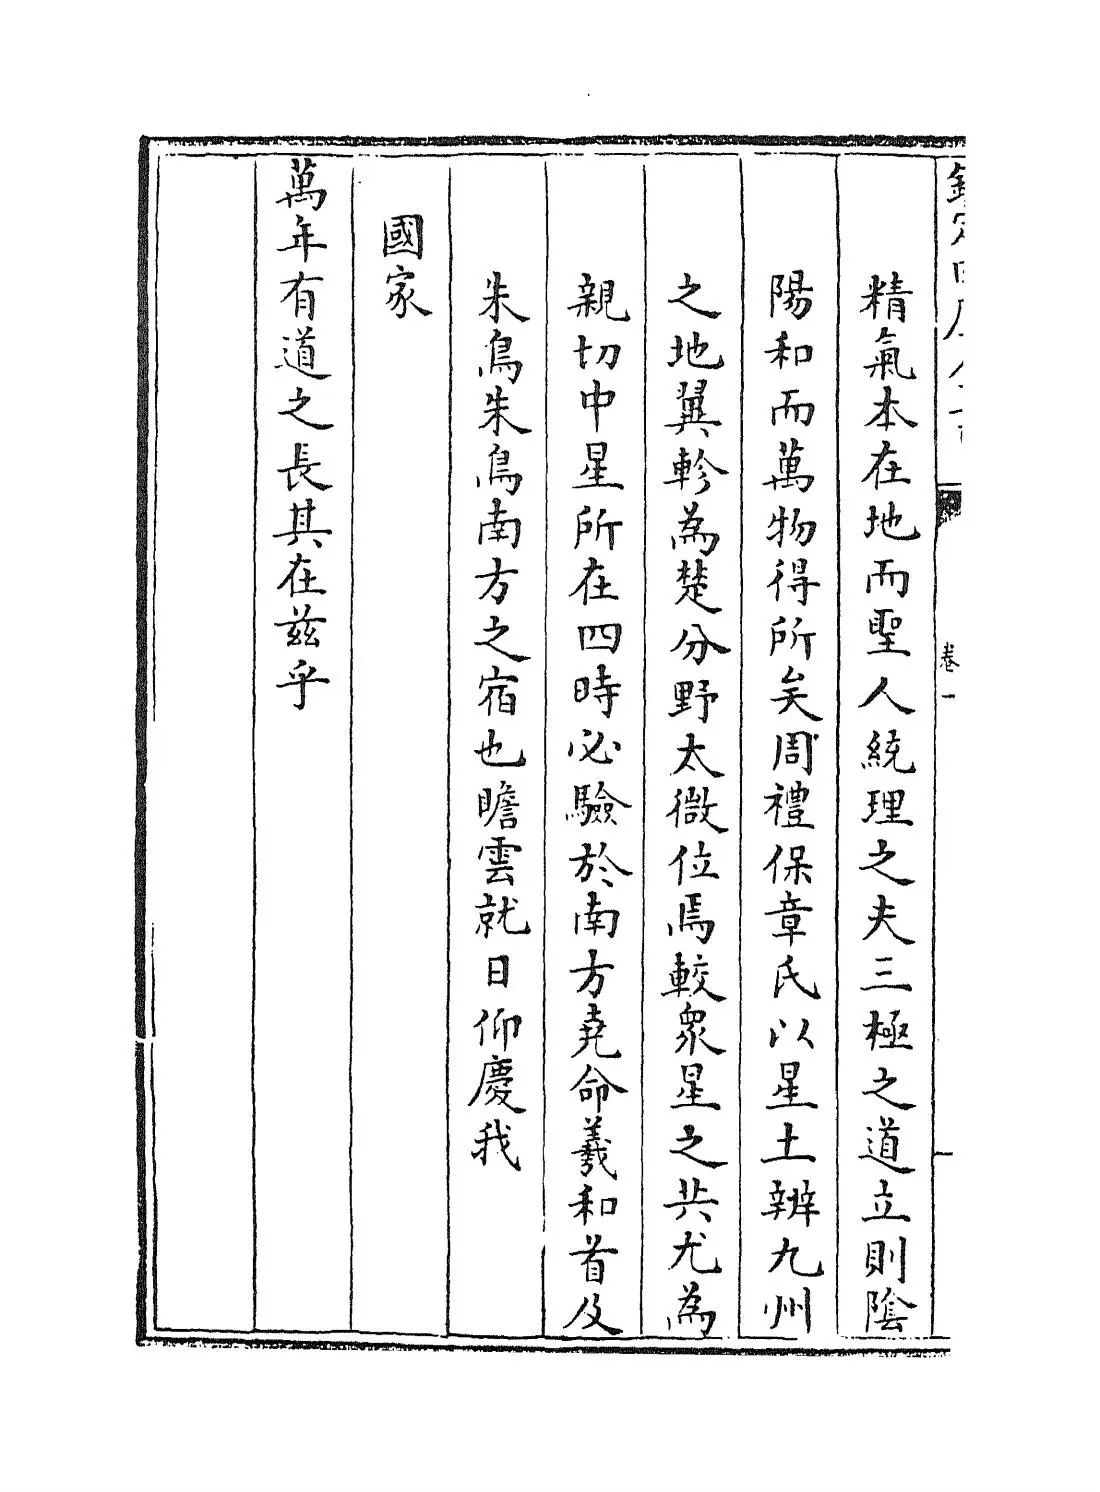 精氣本在地而聖人統理之夫三極之道立則陰
陽和而萬物得所矣周禮保章氏以星土辨九州
之地翼軫為楚分野太微位焉較衆星之共尤為
親切中星所在四時必驗於南方堯命羲和首及
朱鳥朱鳥南方之宿也瞻雲就日仰慶我
國家
萬年有道之長其在茲乎
卷一